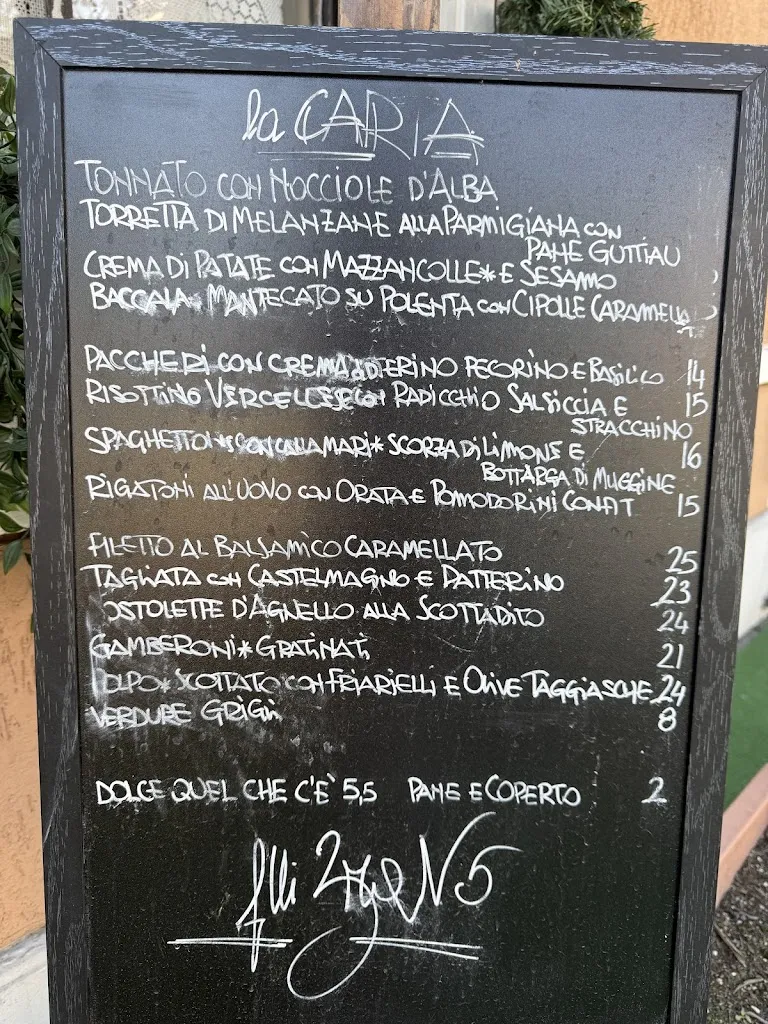 la CARIA
TONNATO CON NOCCIOLE D'ALBA
TORRETTA DI MELANZANE ALLA PARMIGIANA CON
PANE GUTTIAU
CREMA DI PATATE CON MAZZANCOLLE* E SESAMO
BACCALA* MANTECATO SU POLENTA CON CIPOLLE CARAMELLA
PACCHERI CON CREMA DI DATTERINO PECORINO E BASILICO 14
RISOTTINO VERCELLESE CON RADICCHIO SALSICCIA E 15
STRACCHINO
SPAGHETTONI CON CALAMARI* SCORZA DI LIMONE E 16
BOTTARGA DI MUGGINE
RIGATONI ALL'UOVO CON ORATA E POMODORINI CONFIT 15
FILETTO AL BALSAMICO CARAMELLATO 25
TAGLIATA CON CASTELMAGNO E DATTERINO 23
COSTOLETTE D'AGNELLO ALLA SCOTTADITO 24
GAMBERONI* GRATINATI 21
POLPO* SCOTTATO CON FRIARIELLI E OLIVE TAGGIASCHE 24
VERDURE GRIGLI 8
DOLCE QUEL CHE C'È 5,5 PANE E COPERTO 2